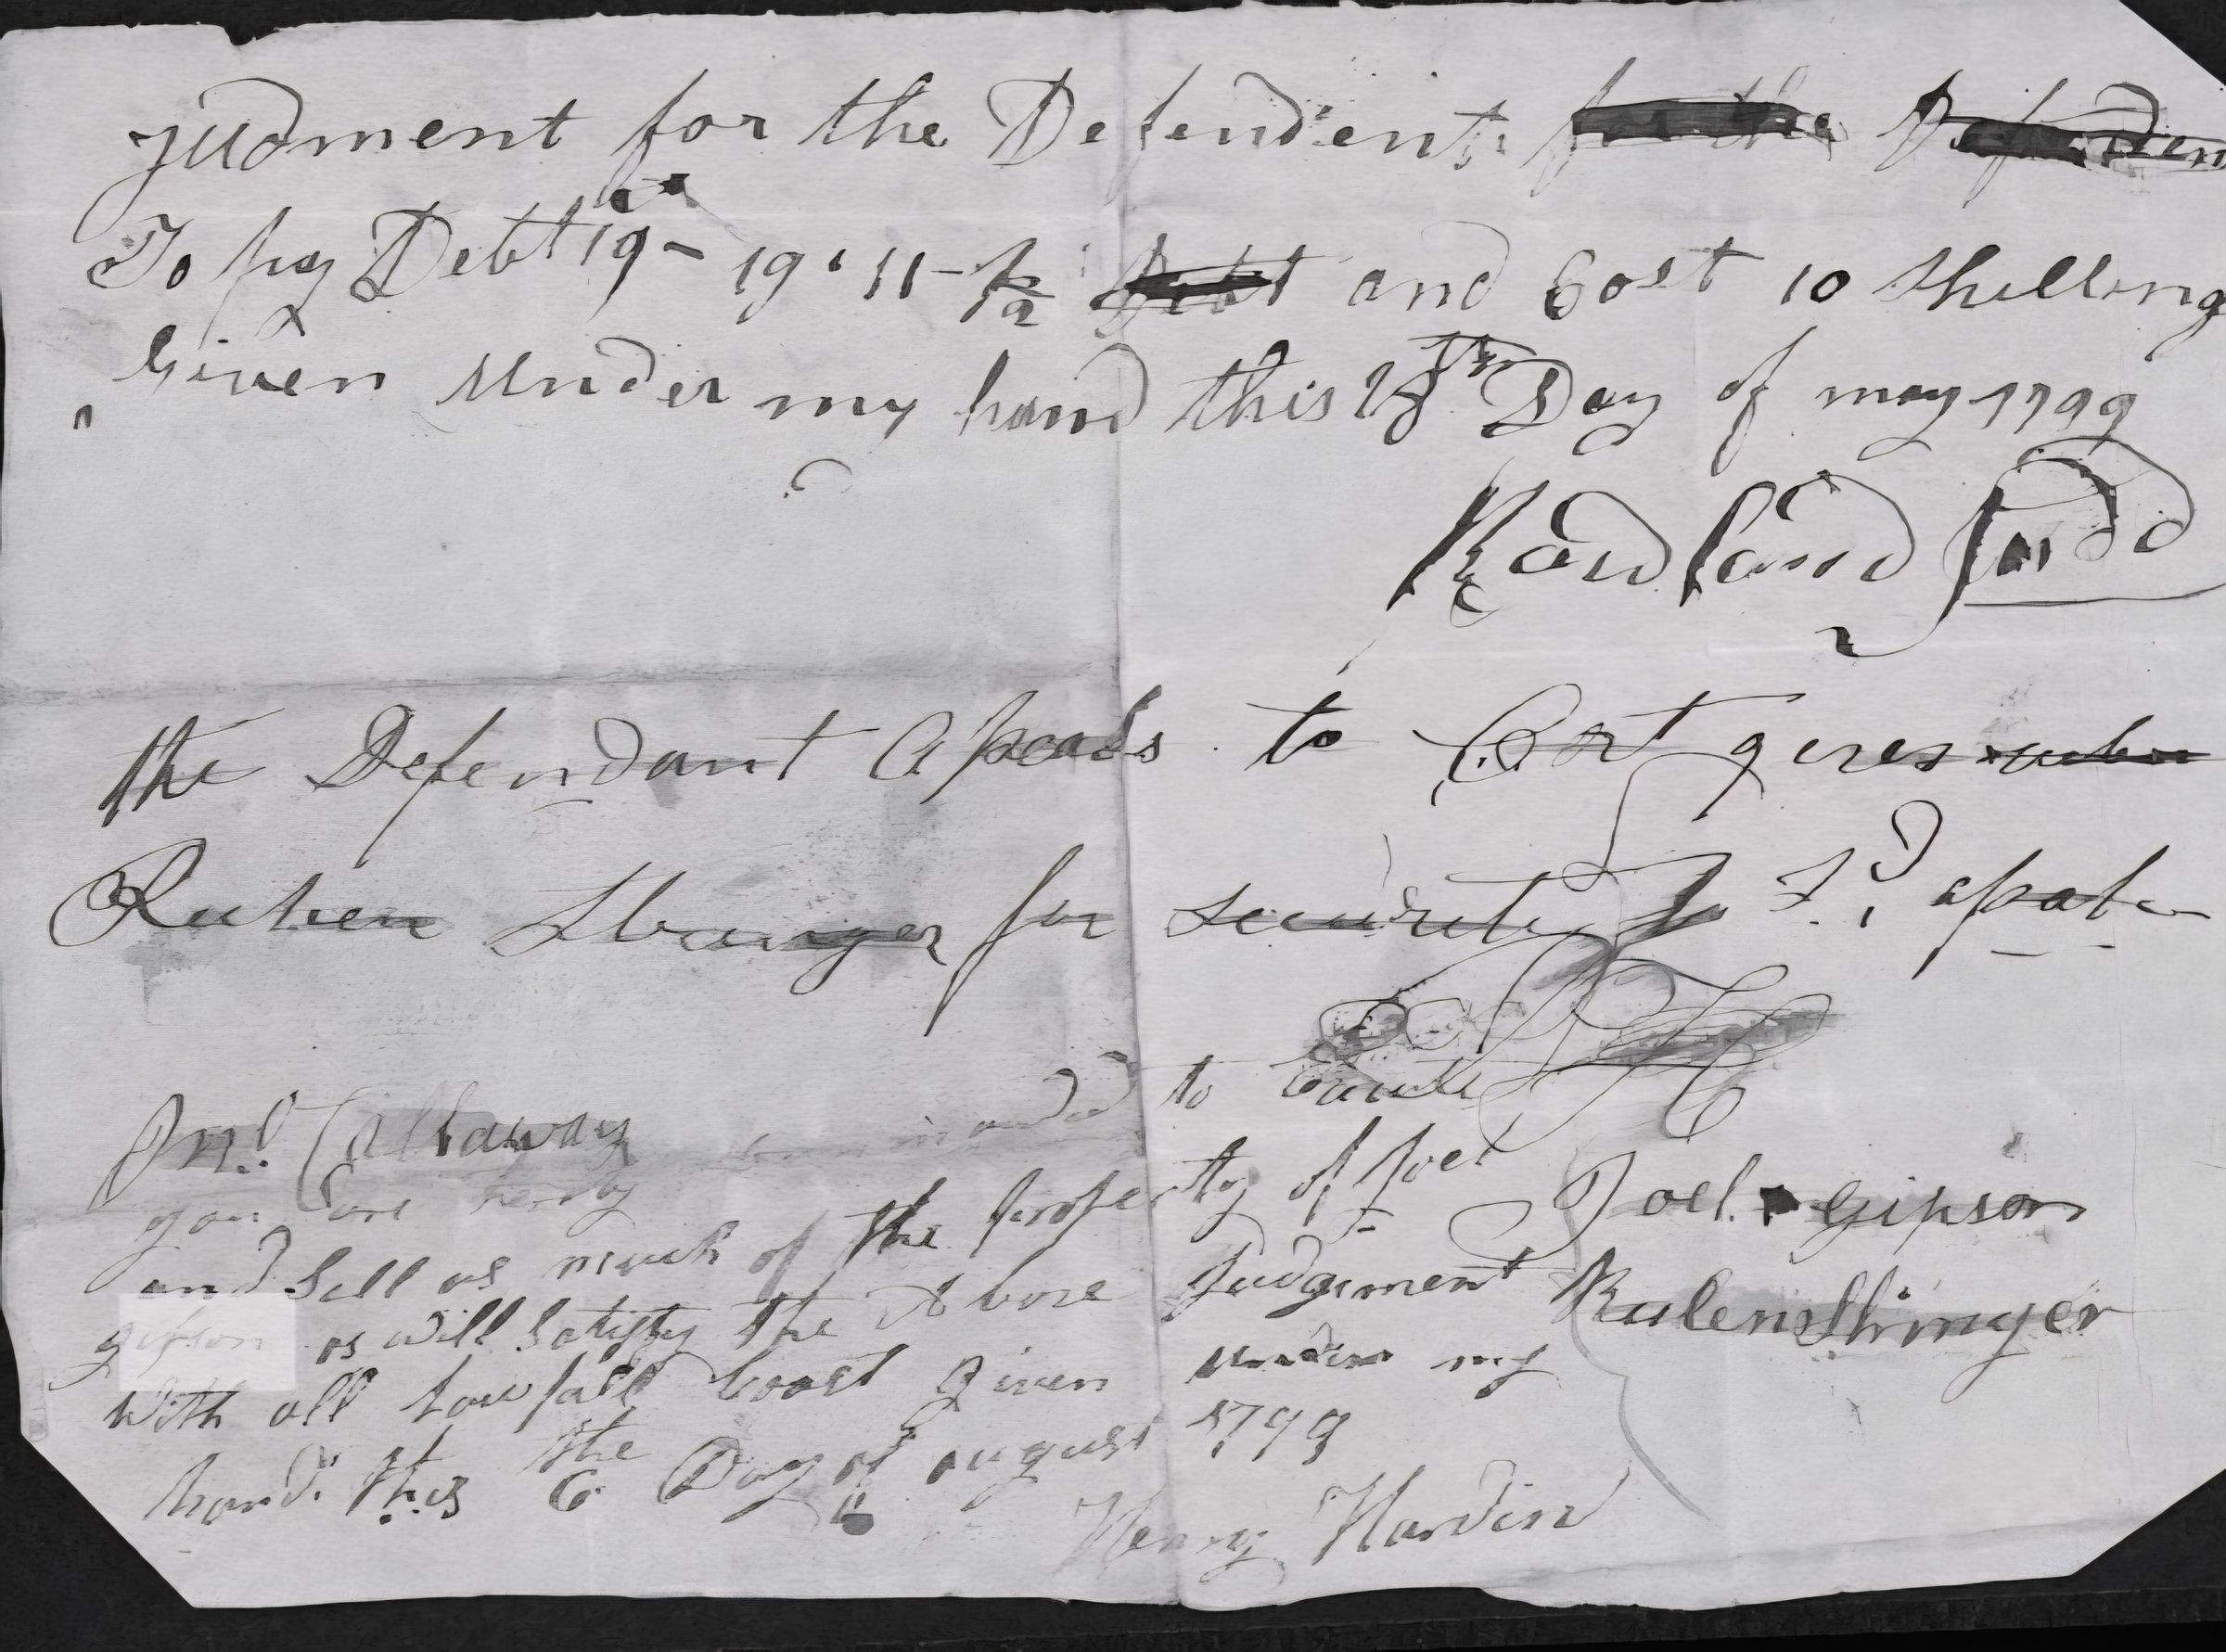 Judment for the Defendent for the Defenden
To pay Debt 19 - 19 · 11 - 1/2 Debt and Cost 10 shilling
Given under my hand this 18th Day of may 1799
Rowland Judd
the Defendant Apeals to Cort gives
Ruben Stringer for security to
Jno. Callaway
you are herby commanded to Cause
and Sell as much of the property of Joel
gipson as will Satisfy the Above Judgment
with all lawfull Coast given under my
hand this the 6 Day of august 1799
Henry Hardin
Joel Gipson
Ruben Stringer